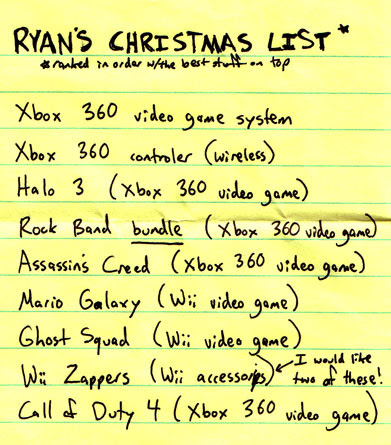 RYAN'S CHRISTMAS LIST*
*ranked in order w/the best stuff on top
Xbox 360 video game system
Xbox 360 controler (wireless)
Halo 3 (Xbox 360 video game)
Rock Band bundle (Xbox 360 video game)
Assassin's Creed (Xbox 360 video game)
Mario Galaxy (Wii video game)
Ghost Squad (Wii video game)
Wii Zappers (Wii accessories) ← I would like
two of these!
Call of Duty 4 (Xbox 360 video game)